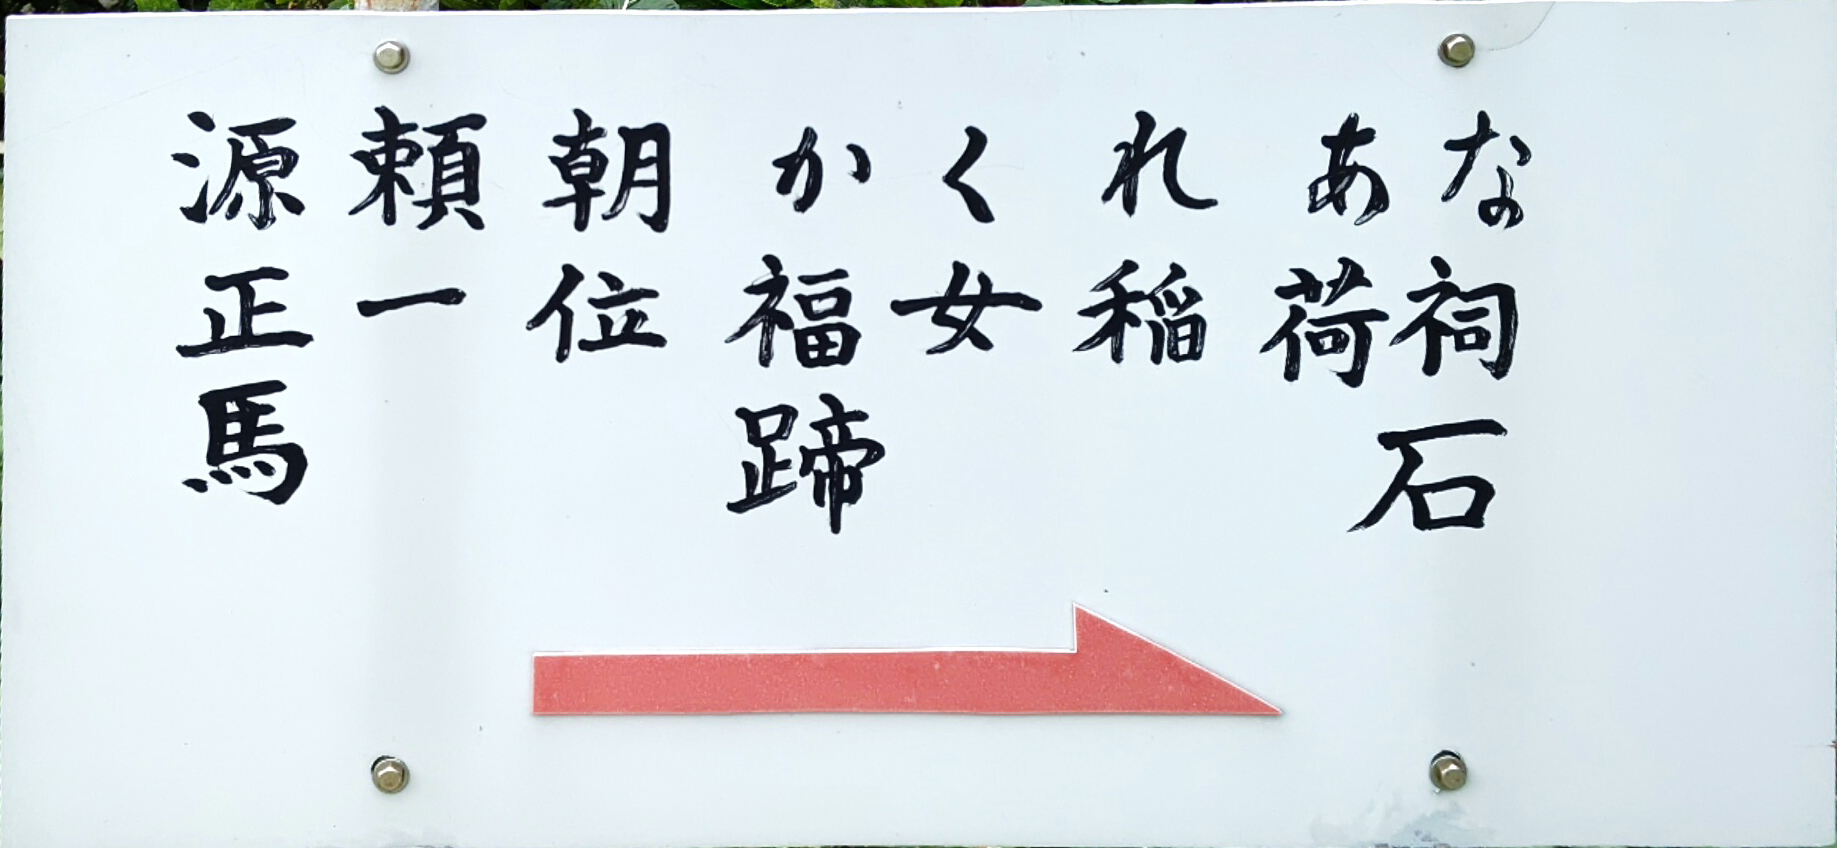 源頼朝かくれあな
正一位福女稲荷祠
馬蹄石